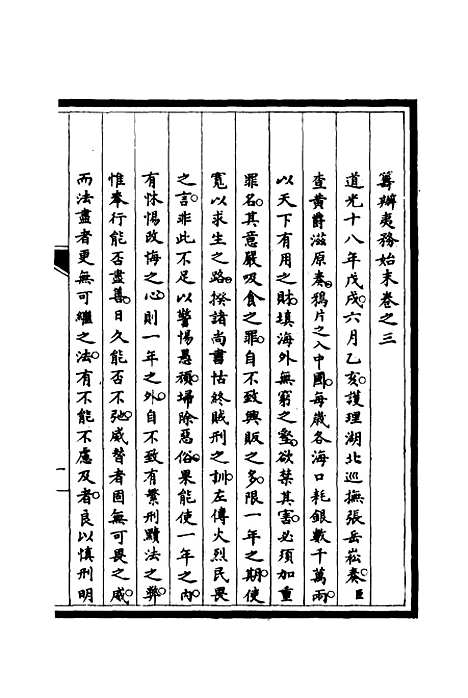 籌辦夷務始末卷之三
道光十八年戊戌六月乙亥。護理湖北巡撫張岳崧奏。臣
查黃爵滋原奏。鴉片之入中國。每歲各海口耗銀數千萬兩。
以天下有用之財。填海外無窮之壑。欲禁其害。必須加重
罪名。其意嚴吸食之罪。自不致興販之多。限一年之期。使
寬以求生之路。揆諸尚書怙終賊刑之訓。左傳火烈民畏
之言。非此不足以警惕愚頑。埽除惡俗。果能使一年之內。
有怵惕改悔之心。則一年之外。自不致有繁刑黷法之弊。
惟奉行能否盡善。日久能否不弛。威瞀者固無可畏之威。
而法盡者更無可繼之法。有不能不慮及者。良以慎刑明